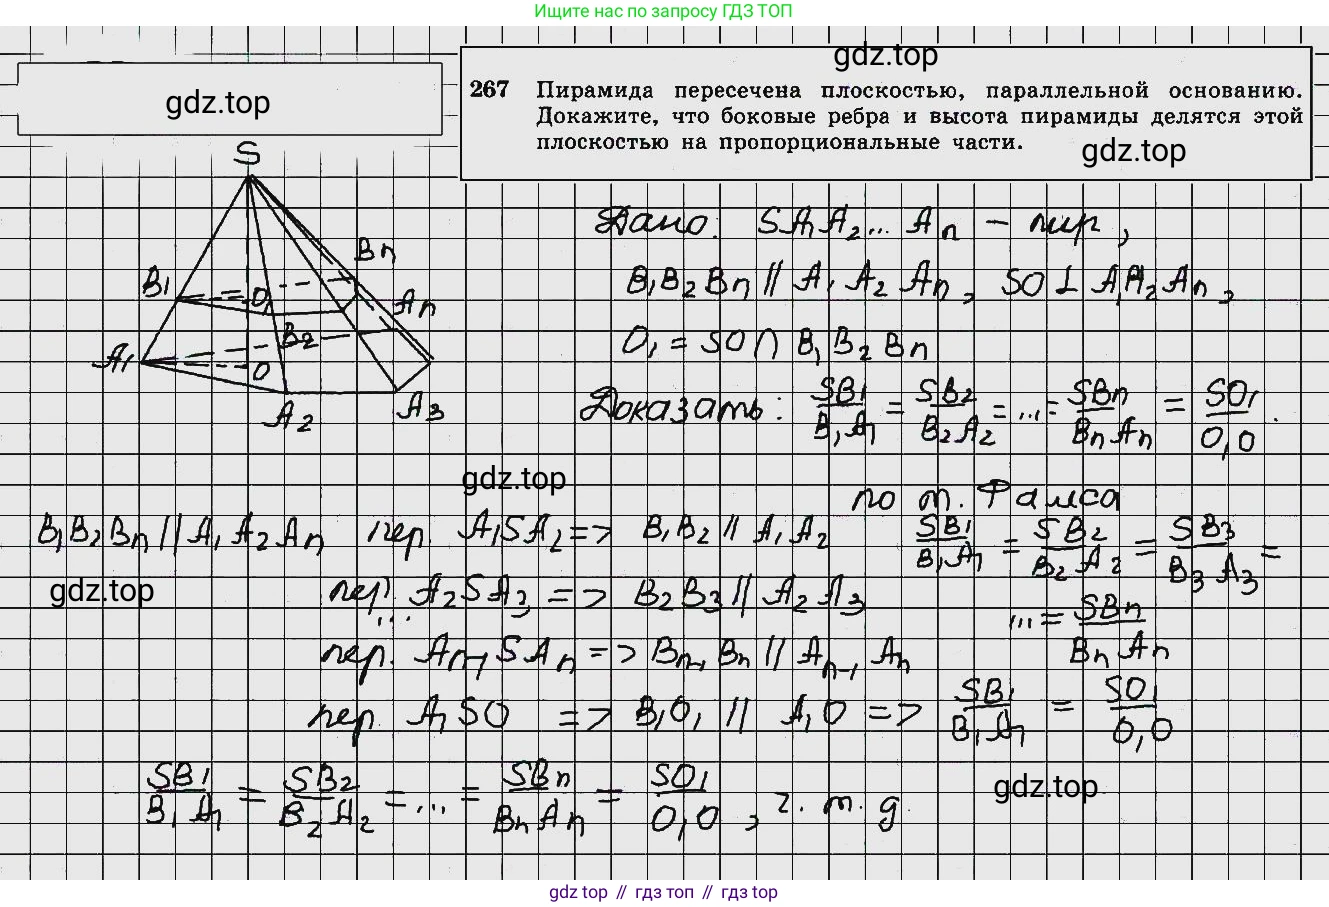 Ищите нас по запросу ГДЗ ТОП
gdz.top
gdz.top
267 Пирамида пересечена плоскостью, параллельной основанию.
Докажите, что боковые ребра и высота пирамиды делятся этой
плоскостью на пропорциональные части.
gdz.top
S
Bn
B1
O1
An
B2
A1
O
A2
A3
Дано: SA1A2... An – пир,
B1B2Bn // A1A2An, SO⊥A1A2An,
O1 = SO∩B1B2Bn
Доказать: SB1/B1A1 = SB2/B2A2 = ... = SBn/BnAn = SO1/O1O.
gdz.top
по т. Фалеса
B1B2Bn // A1A2An пер. A1SA2 => B1B2 // A1A2 SB1/B1A1 = SB2/B2A2 = SB3/B3A3 =
gdz.top
пер. A2SA3 => B2B3 // A2A3
... = SBn/BnAn
...
пер. An-1SAn => Bn-1Bn // An-1An
пер. A1SO => B1O1 // A1O => SB1/B1A1 = SO1/O1O
SB1/B1A1 = SB2/B2A2 = ... = SBn/BnAn = SO1/O1O, ч. т. д.
gdz.top
gdz top // гдз топ // gdz top